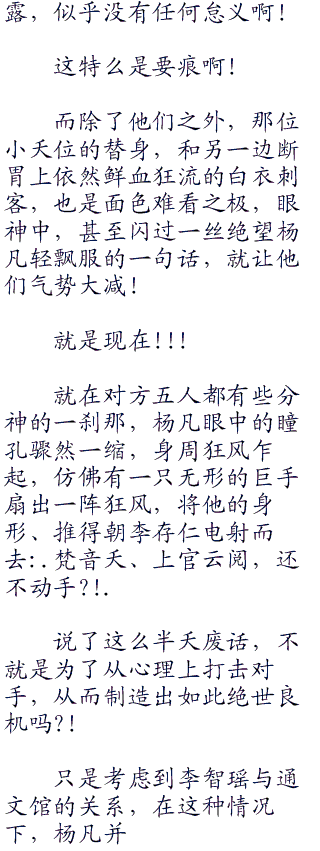 露，似乎没有任何怠义啊！
这特么是要痕啊！
而除了他们之外，那位
小天位的替身，和另一边断
胃上依然鲜血狂流的白衣刺
客，也是面色难看之极，眼
神中，甚至闪过一丝绝望杨
凡轻飘服的一句话，就让他
们气势大减！
就是现在！！！
就在对方五人都有些分
神的一刹那，杨凡眼中的瞳
孔骤然一缩，身周狂风乍
起，仿佛有一只无形的巨手
扇出一阵狂风，将他的身
形、推得朝李存仁电射而
去：.梵音天、上官云阅，还
不动手？！.
说了这么半天废话，不
就是为了从心理上打击对
手，从而制造出如此绝世良
机吗？！
只是考虑到李智瑶与通
文馆的关系，在这种情况
下，杨凡并